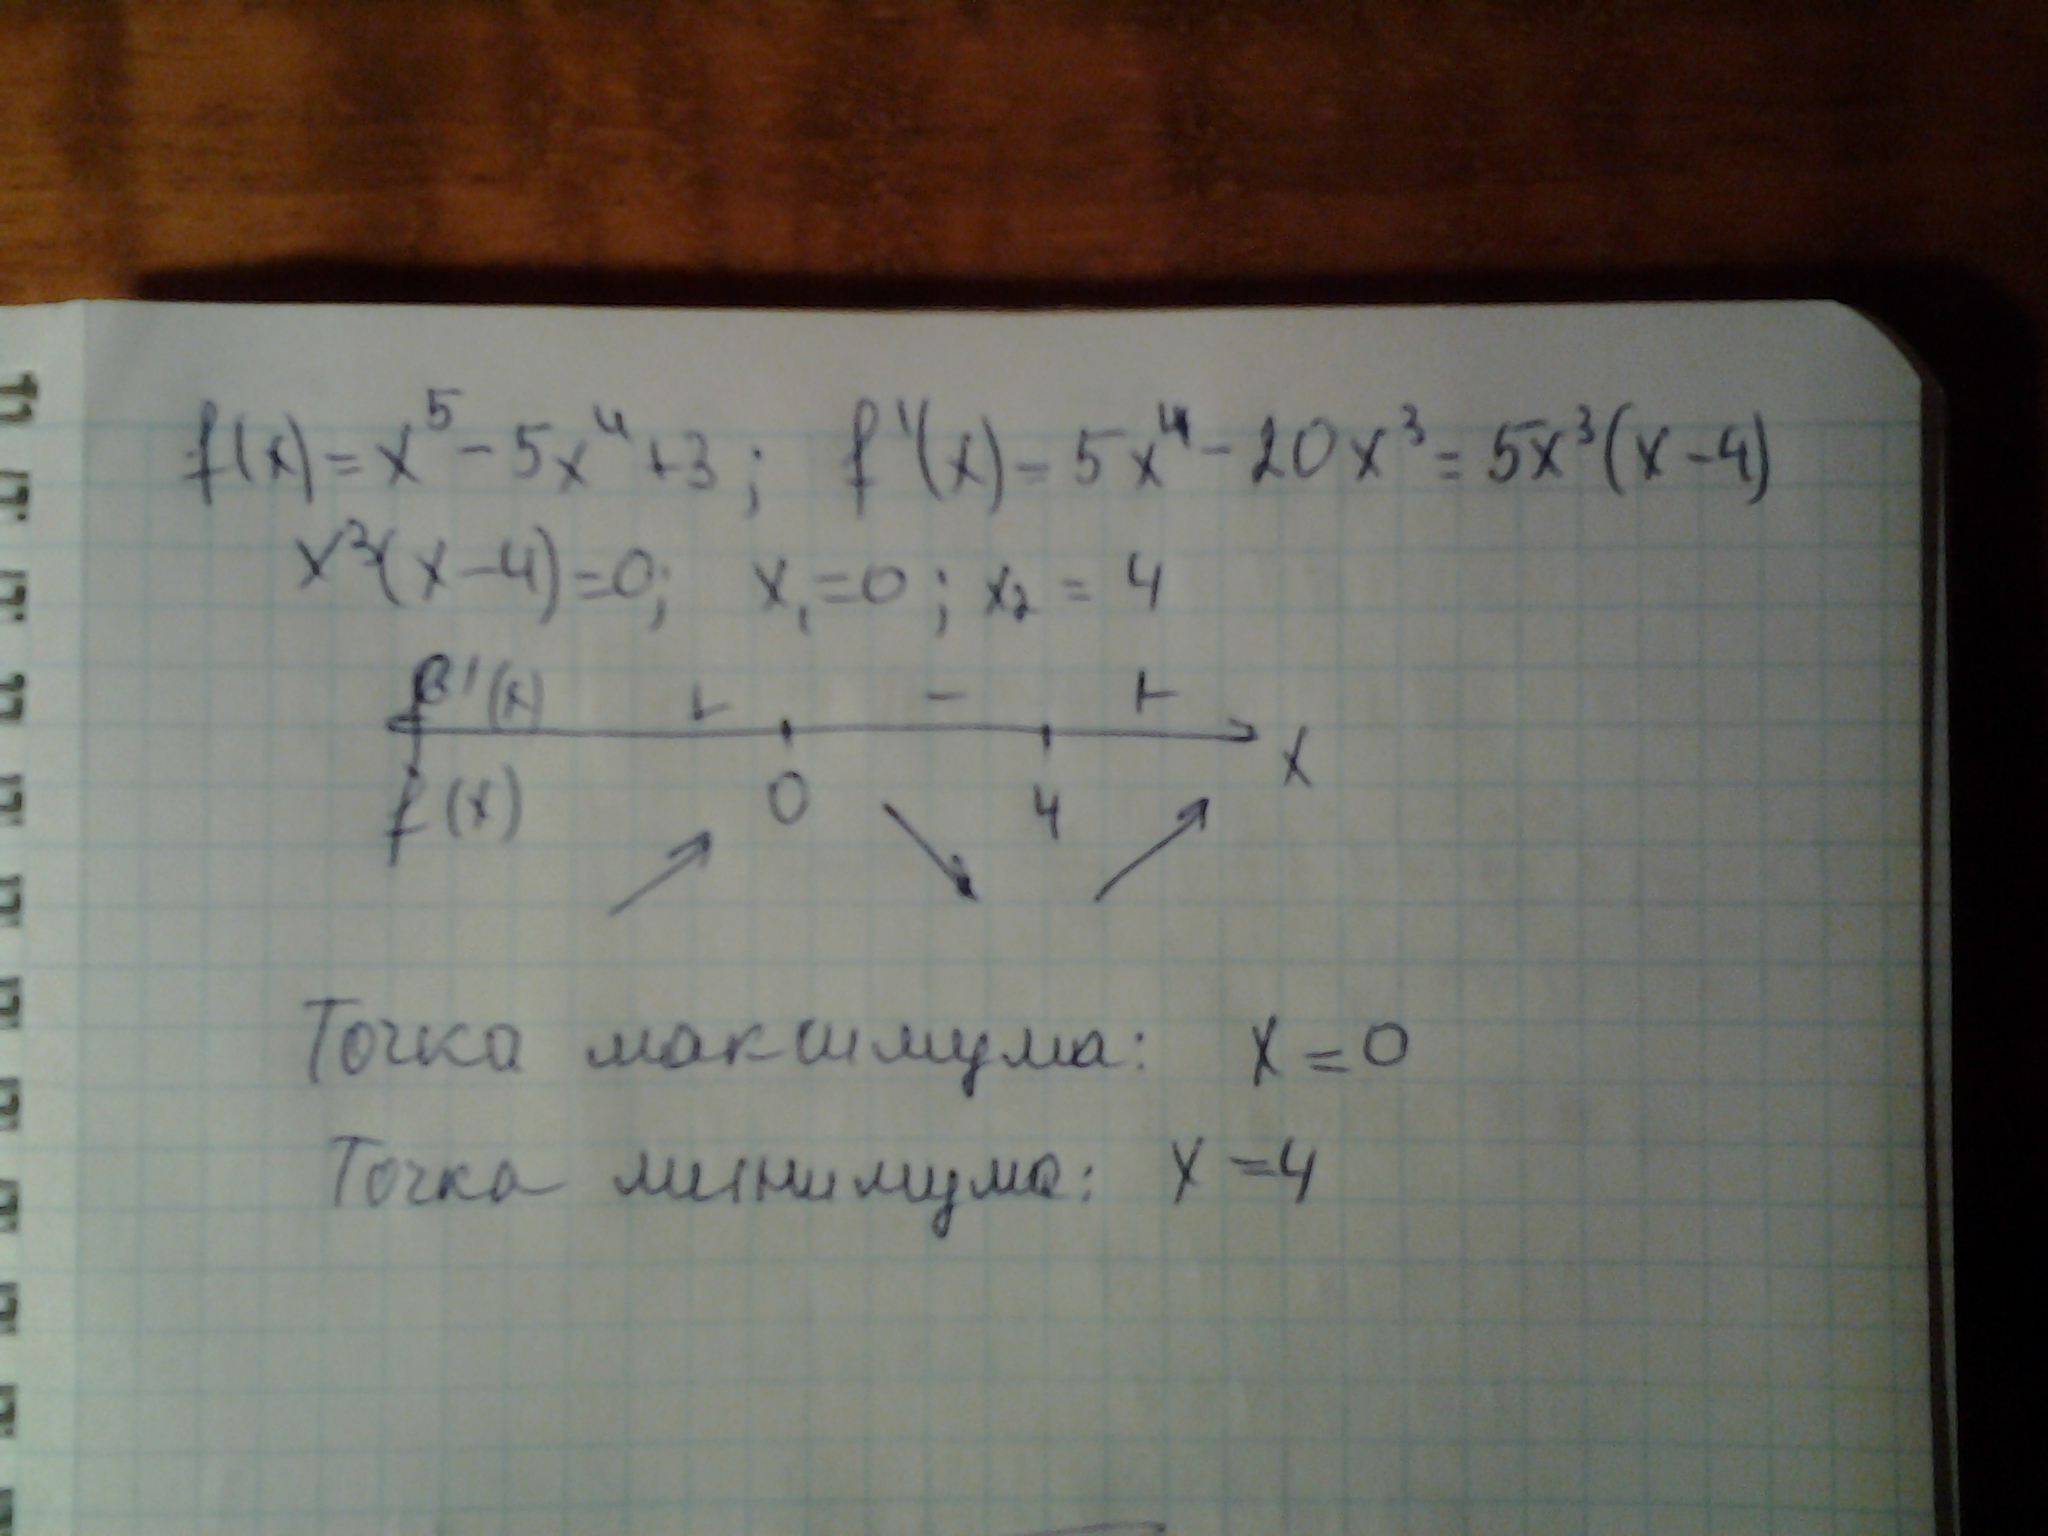 f(x)=x⁵-5x⁴+3; f'(x)=5x⁴-20x³=5x³(x-4)
x³(x-4)=0; x₁=0; x₂=4
f'(x) + - + x
f(x) 0 4
Точка максимума: x=0
Точка минимума: x=4